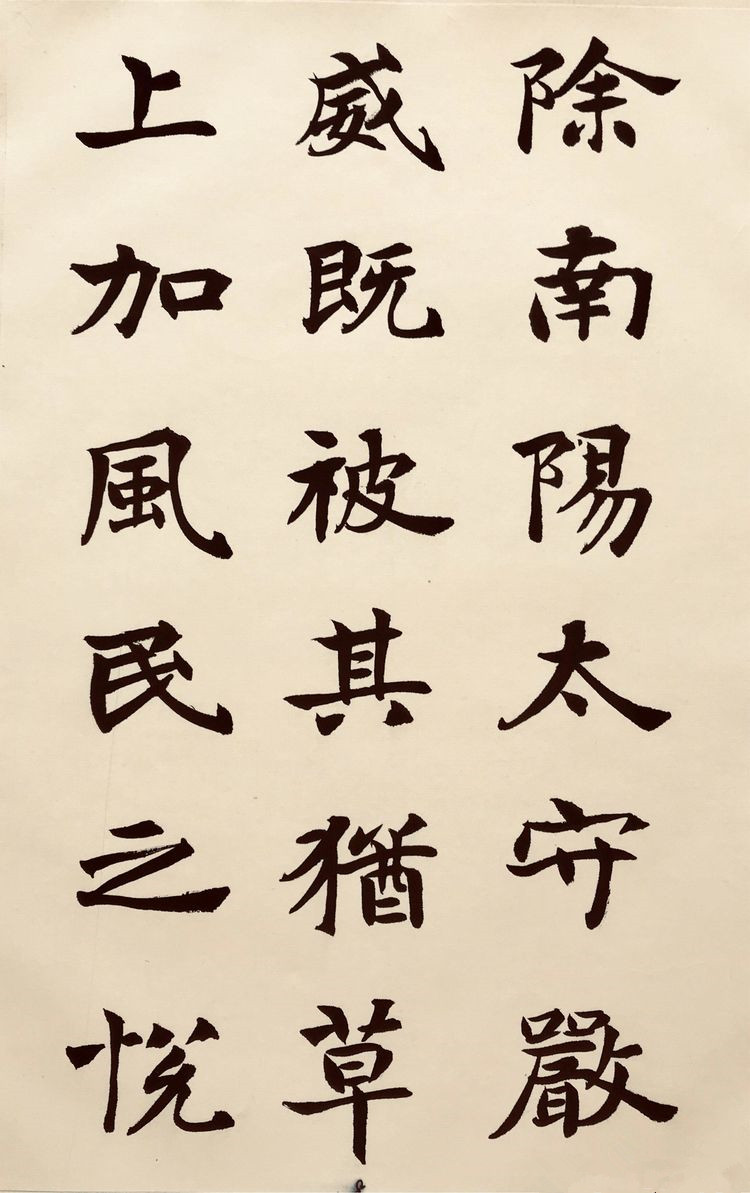 除南陽太守嚴
威既被其猶草
上加風民之悅